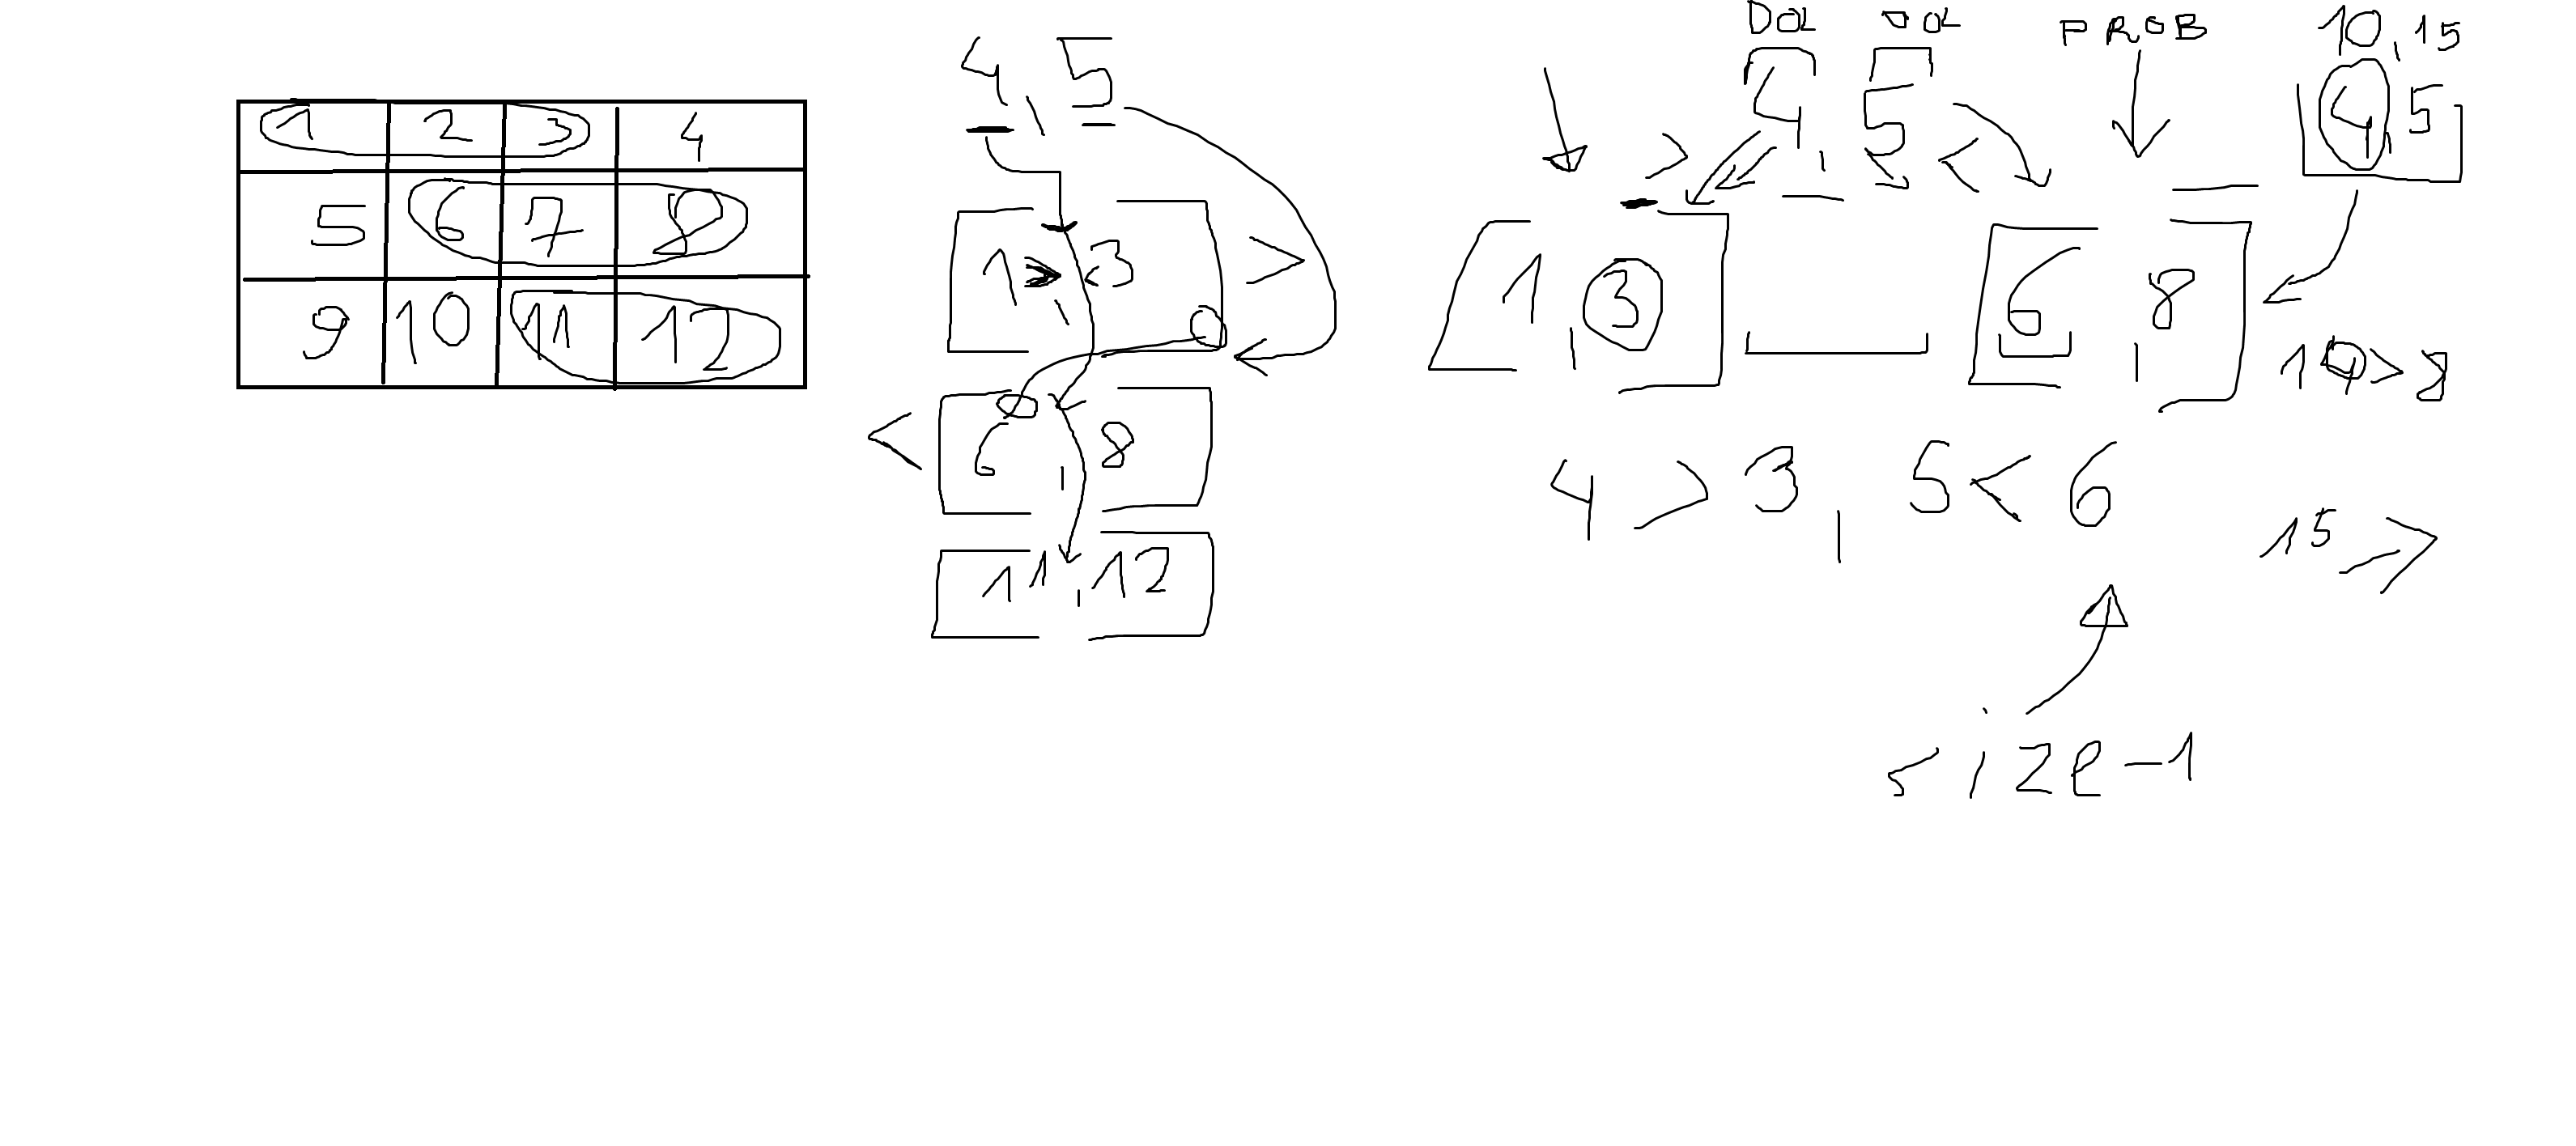 1 2 3 4
5 6 7 8
9 10 11 12
4, 5
1 > < 3 >
< 6, 8
11, 12
DOL DOL PROB 10, 15
> 4, 5 < 4, 5
1, 3 6, 8
> 8
4 > 3, 5 < 6
15 >
size-1